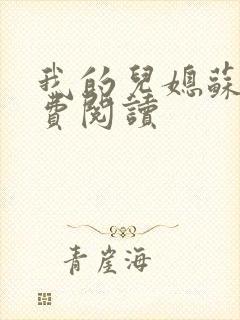 我的兒媳蘇
費閱讀
青崖海